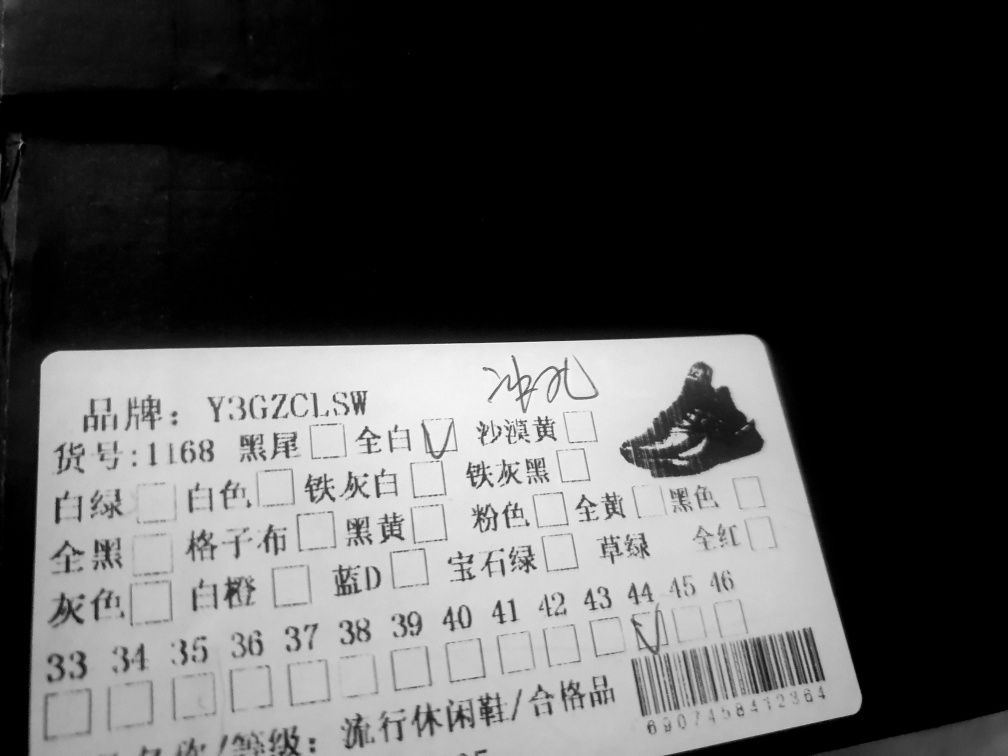 冲孔
品牌：Y3GZCLSW
货号:1168 黑尾 全白 沙漠黄
白绿 白色 铁灰白 铁灰黑
全黑 格子布 黑黄 粉色 全黄 黑色
灰色 白橙 蓝D 宝石绿 草绿 全红
33 34 35 36 37 38 39 40 41 42 43 44 45 46
名称/等级：流行休闲鞋/合格品
6907458412364